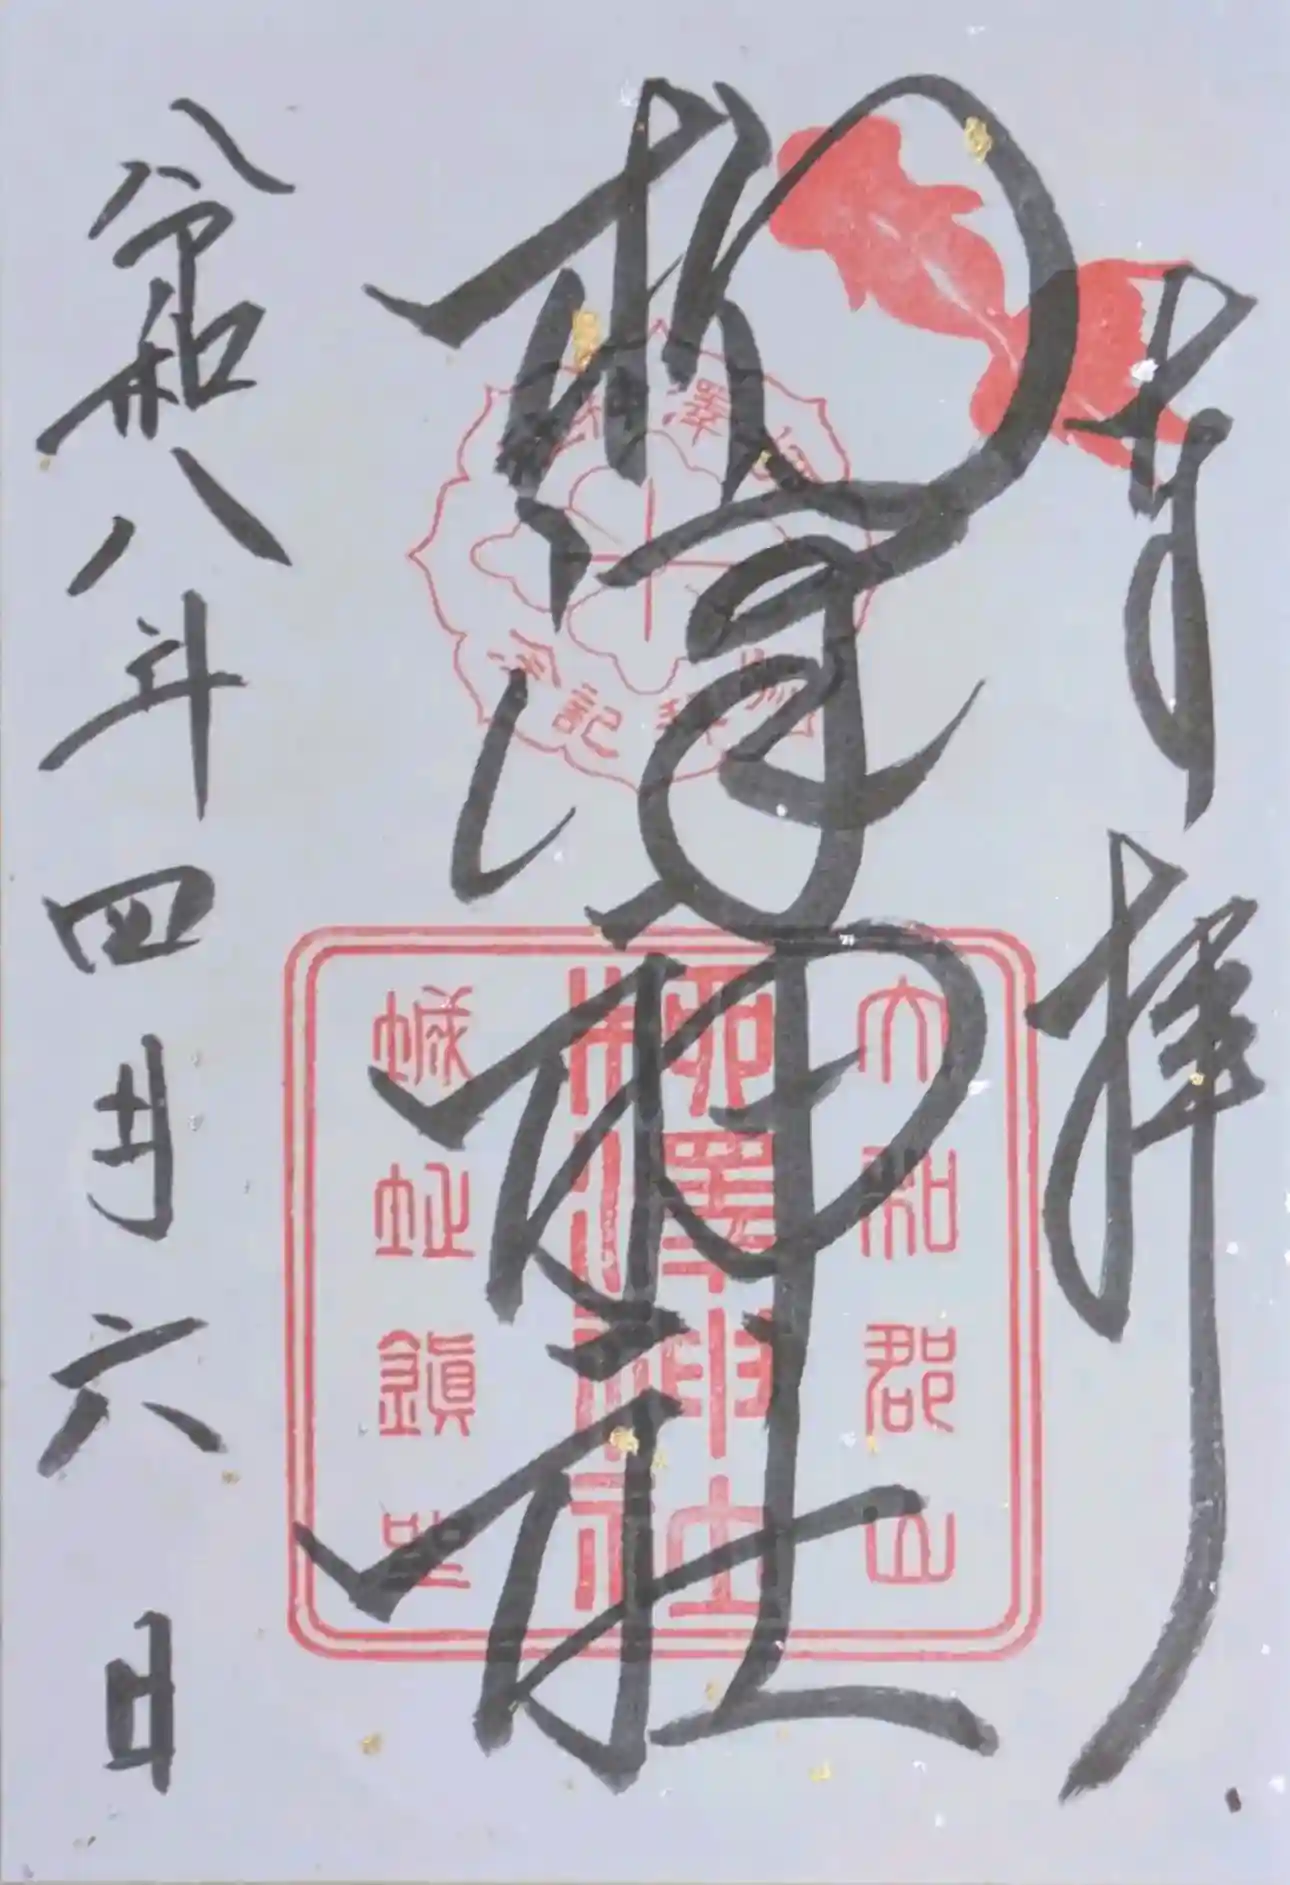 奉拝
柳澤神社
令和八年四月六日
大和郡山
柳澤神社
城址鎮聖